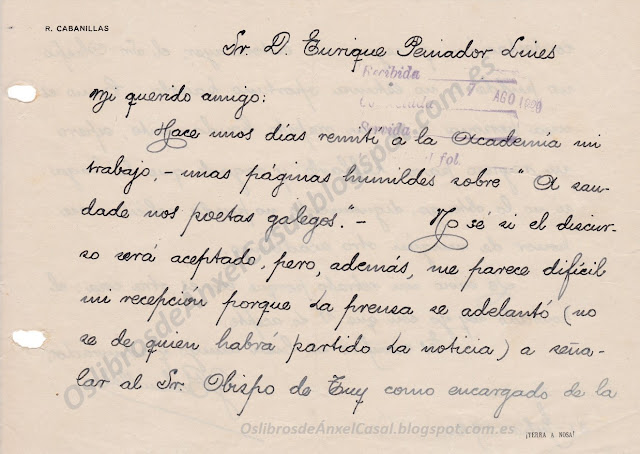 R. CABANILLAS
Sr. D. Enrique Peinador Lines
Recibida
7 AGO 1920
Contestada
Servida
fol.
Mi querido amigo:
Hace unos días remití a la Academia mi
trabajo, - unas páginas humildes sobre "A sau-
dade nos poetas galegos." - No sé si el discur-
so será aceptado, pero, además, me parece difícil
mi recepción porque la prensa se adelantó (no
se de quien habrá partido la noticia) a seña-
lar al Sr. Obispo de Tuy como encargado de la
¡TERRA A NOSA!
OslibrosdeÁnxelCasal.blogspot.com.es
OslibrosdeÁnxelCasal.blogspot.com.es